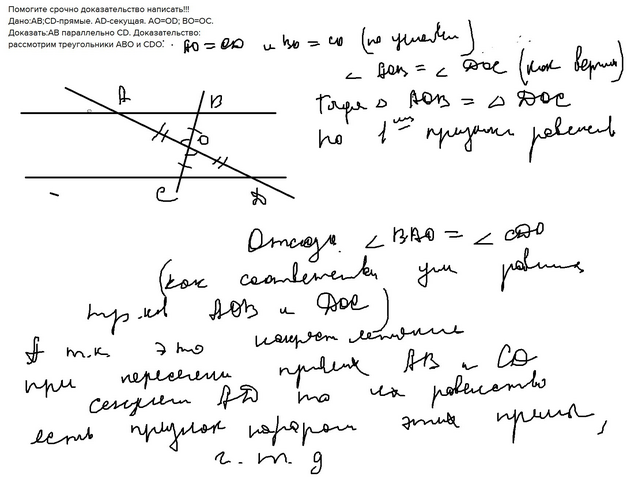 Помогите срочно доказательство написать!!!
Дано:AB;CD-прямые. AD-секущая. AO=OD; BO=OC.
Доказать:AB параллельно CD. Доказательство:
рассмотрим треугольники ABO и CDO:
AO = OD и BO = CO (по условию)
∠ AOB = ∠ DOC (как вертик)
Тогда △ AOB = △ DOC
по 1 признаку равенств
A
B
O
C
D
Отсюда ∠ BAO = ∠ CDO
(как соответствен углы равных
тр.ков AOB и DOC)
А т.к. это накрест лежащие
при пересечении прямых AB и CD
секущей AD то их равенство
есть признак паралл этих прямых,
ч. т. д